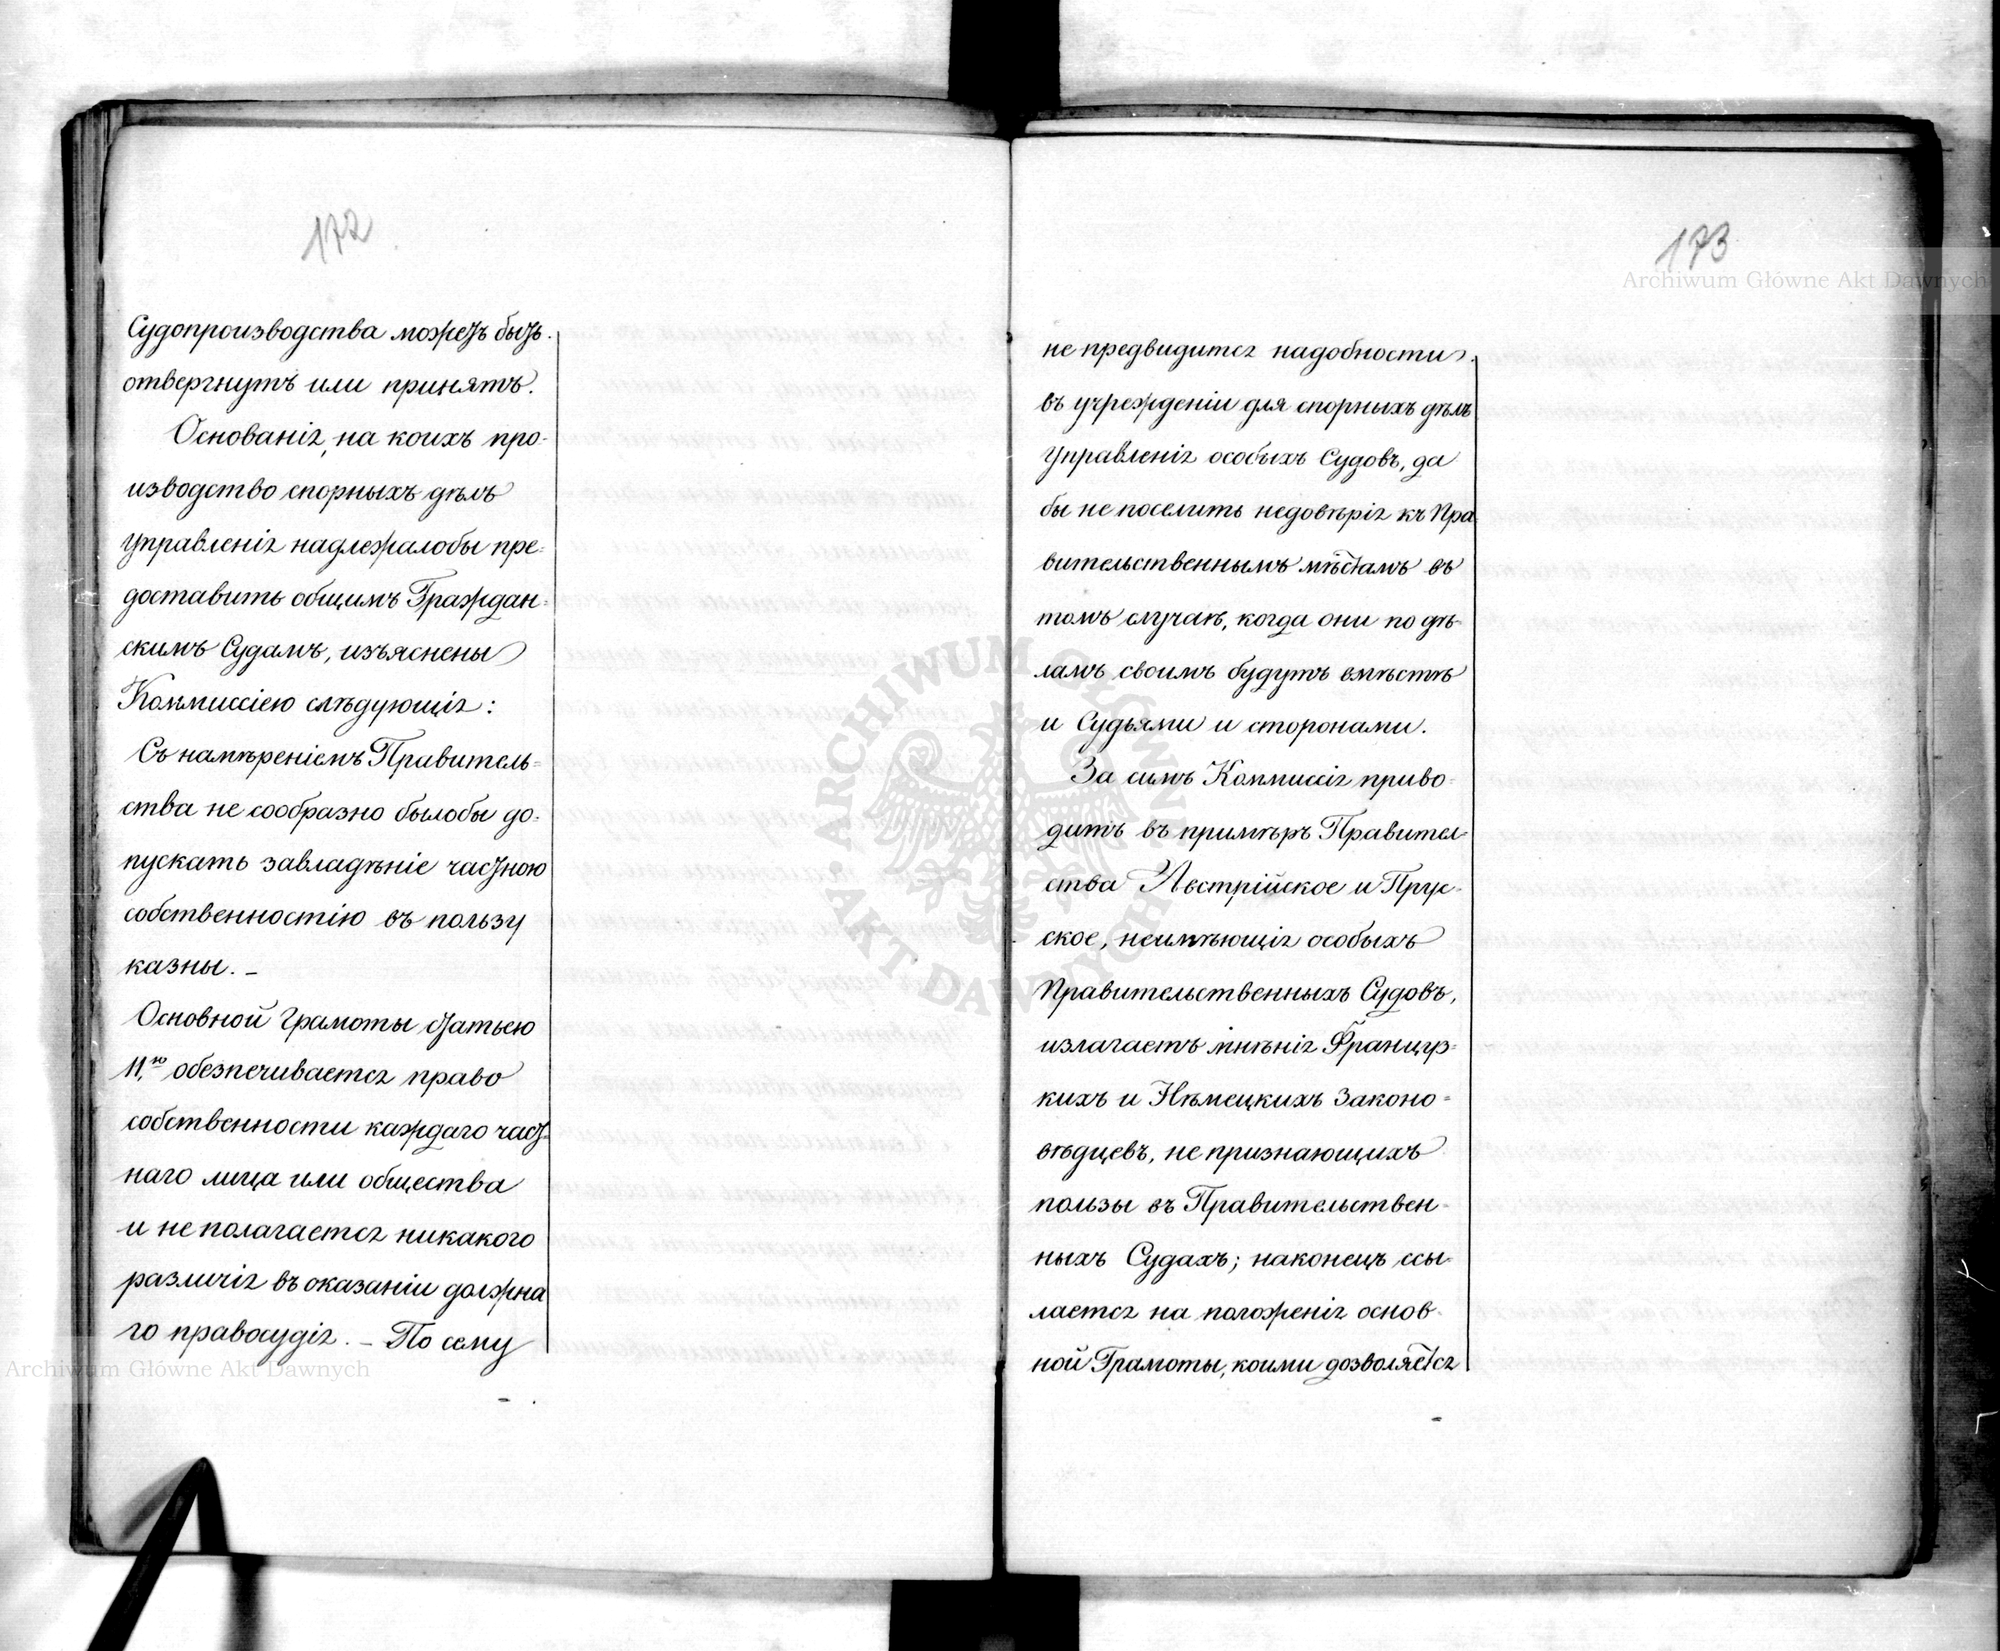 172
Судопроизводства можетъ быть
отвергнутъ или принятъ.
Основанія, на коихъ про-
изводство спорныхъ дѣлъ
управленія надлежалобы пре-
доставить общимъ Граждан-
скимъ Судамъ, изъяснены
Коммиссіею слѣдующія:
Съ намѣреніемъ Правитель-
ства не сообразно былобы до-
пускать завладѣніе частною
собственностію въ пользу
казны. –
Основной Грамоты статьею
11.ю обезпечивается право
собственности каждаго част-
наго лица или общества
и не полагается никакого
различія въ оказаніи должна
го правосудія. – По сему
173
не предвидится надобности
въ учрежденіи для спорныхъ дѣлъ
Управленія особыхъ Судовъ, да
бы не поселить недовѣрія къ Пра
вительственнымъ мѣстамъ въ
томъ случаѣ, когда они по дѣ-
ламъ своимъ будутъ вмѣстѣ
и Судьями и сторонами.
За симъ Коммиссія приво-
дитъ въ примѣръ Правител-
ства Австрійское и Прус-
ское, неимѣющія особыхъ
Правительственныхъ Судовъ,
излагаетъ мнѣнія Француз-
кихъ и Нѣмецкихъ Законо-
вѣдцевъ, не признающихъ
пользы въ Правительствен-
ныхъ Судахъ; наконецъ ссы-
лается на положенія основ-
ной Грамоты, коими дозволяется
Archiwum Główne Akt Dawnych
Archiwum Główne Akt Dawnych
ARCHIWUM GŁÓWNE AKT DAWNYCH